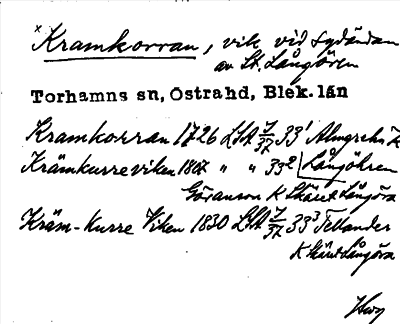 x Kramkorran, vik vid sydändan
av St. Långören
Torhamns sn, Östrahd, Blek. län
Kramkorran 1726 LSA J/37 33¹ Almgrehn K
Krämkurreviken 1807 " " 33² Långöhren
Göranson K Skäret Långöra
Kräm-Kurre Viken 1830 LSA J/37 33³ Tellander
K Skäret Långöra